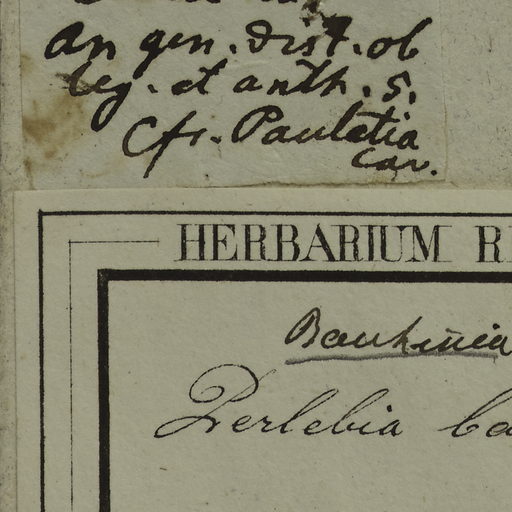 An gen. dist. ob
leg. et anth. 5.
Cfr. Pauletia
Cav.
HERBARIUM R
Bauhinia
Perlebia ba